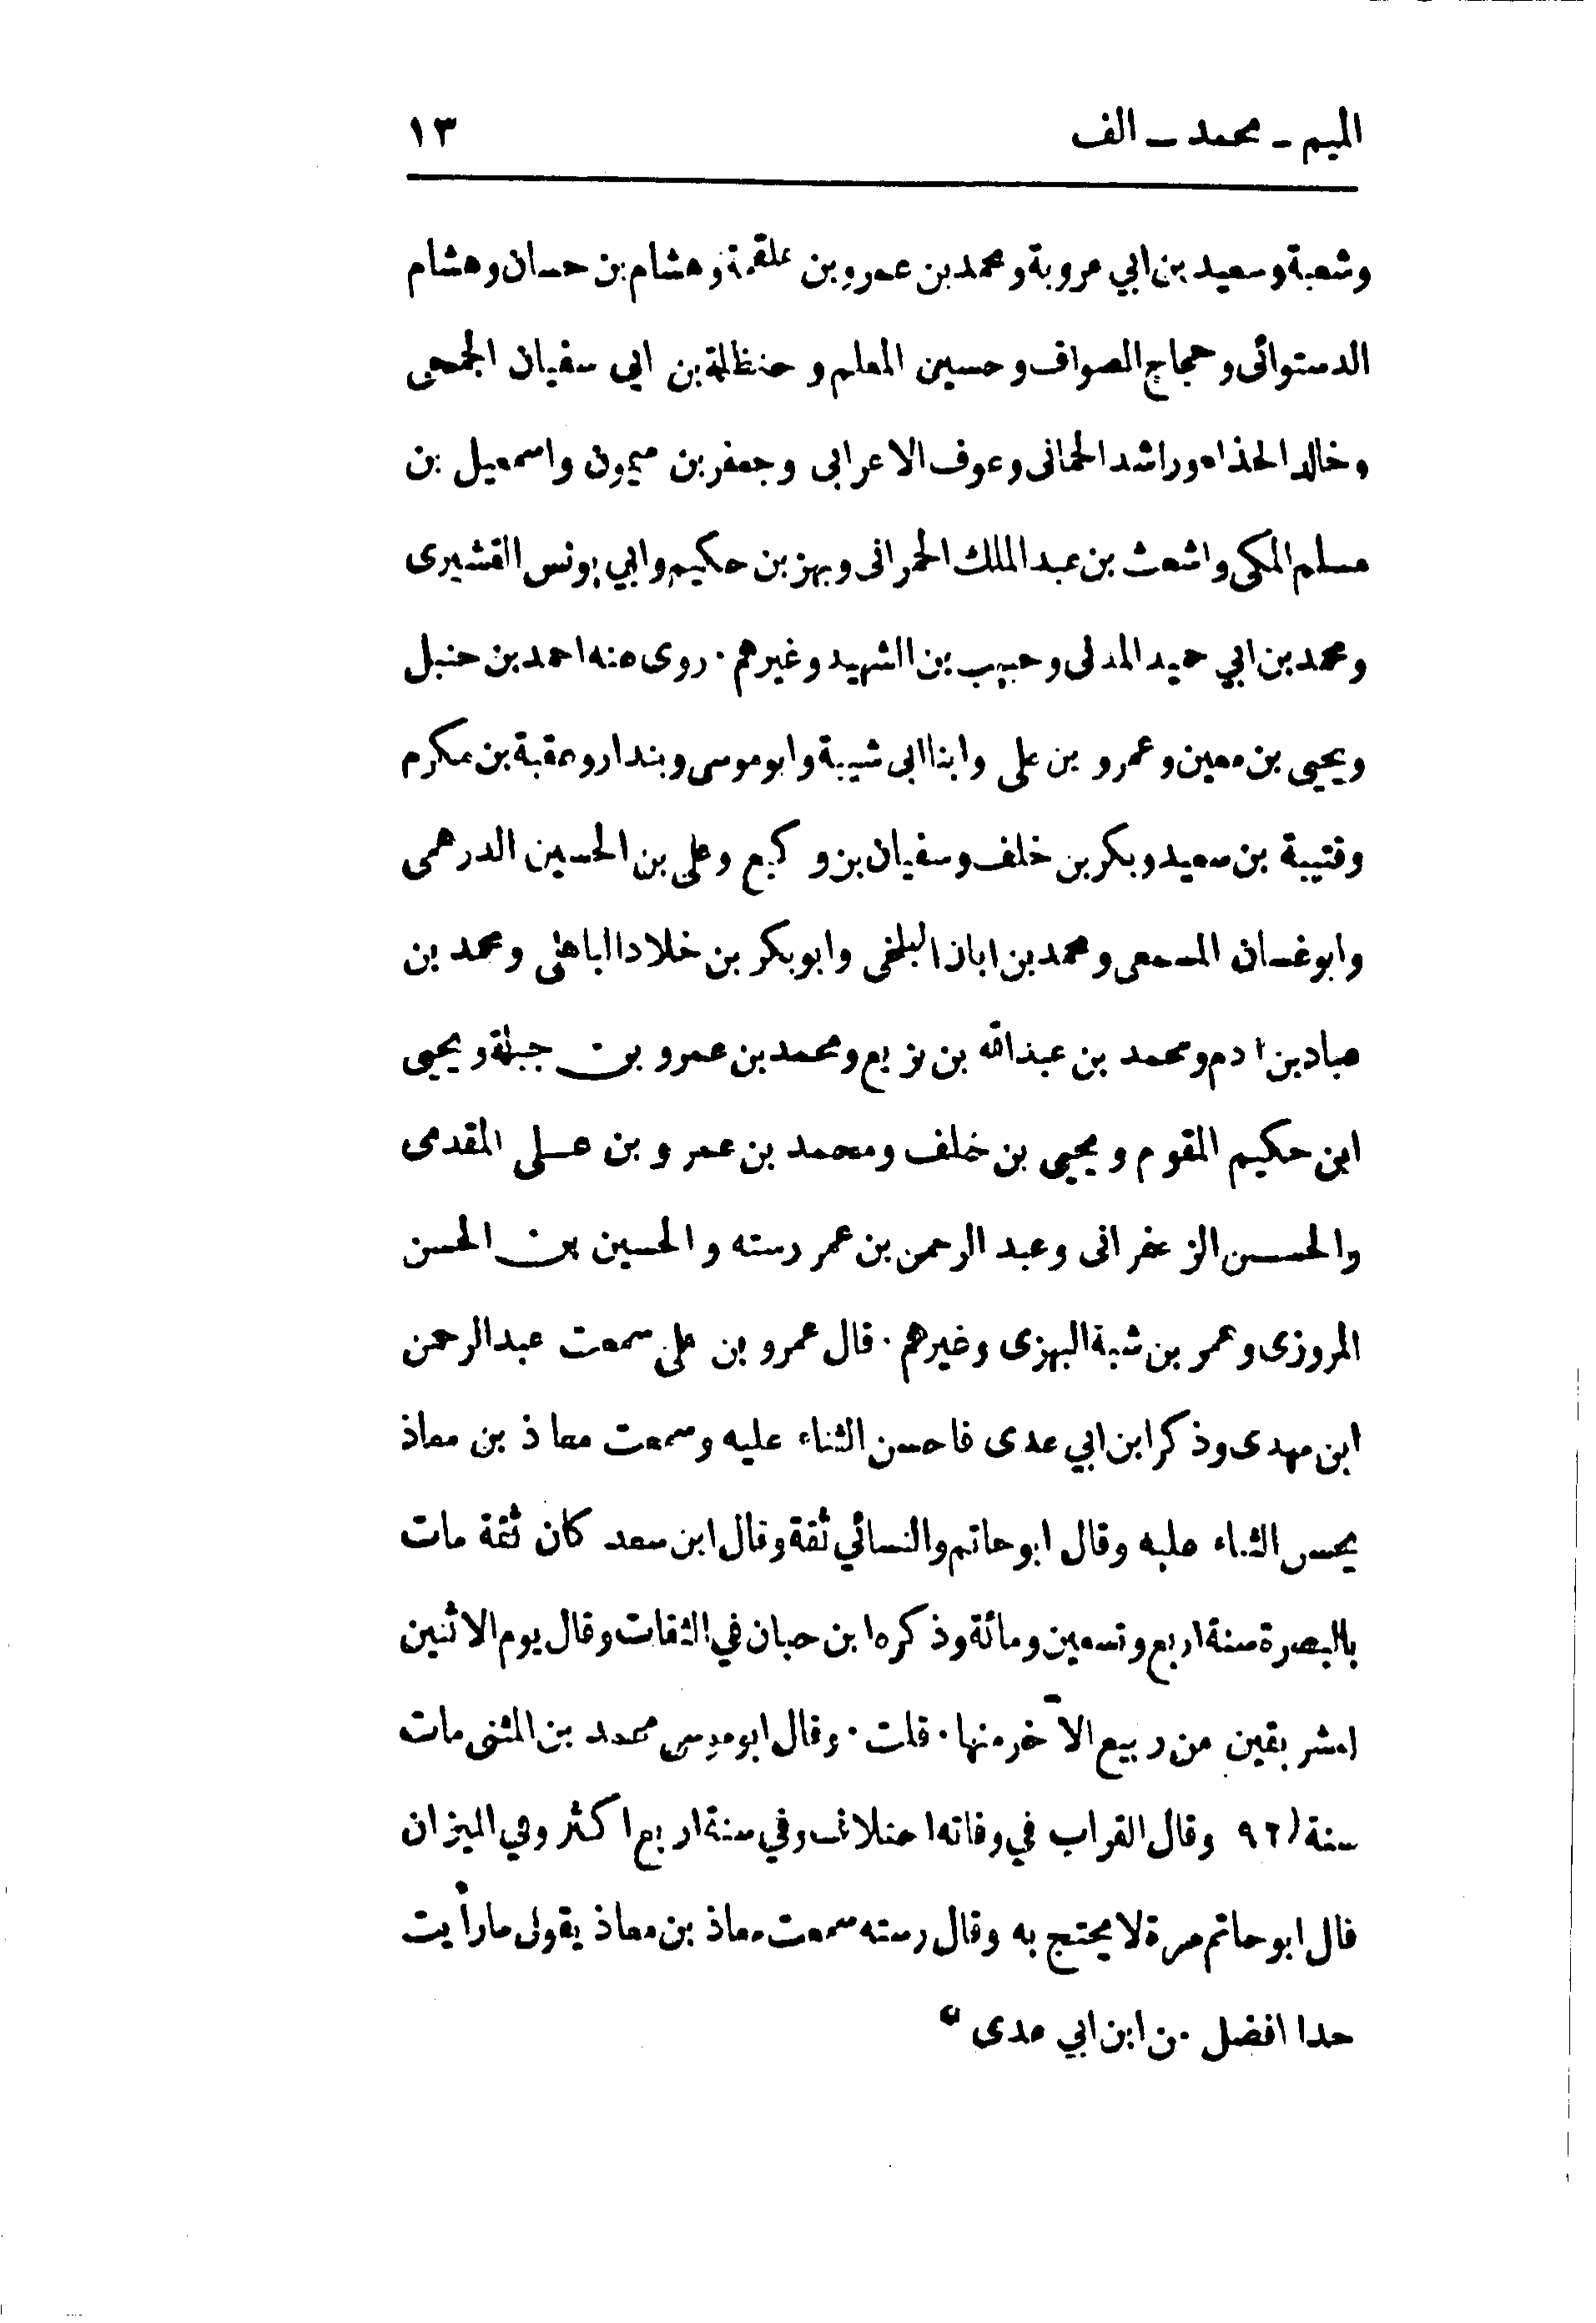 الميم ـ محمد ـ الف ١٣
وشعبة وسعيد بن ابي عروبة ومحمد بن عمرو بن علقمة وهشام بن حسان وهشام
الدستوائى وحجاج الصواف وحسين المعلم و حنظلة بن ابى سفيان الجمحى
وخالد الحذاء وراشد الحمانى وعوف الاعرابى وجعفر بن ميمون واسمعيل بن
مسلم المكى واشعث بن عبد الملك الحمرانى وبهز بن حكيم وابي يونس القشيرى
ومحمد بن ابي حميد المدنى وحبيب بن الشهيد وغيرهم . روى عنه احمد بن حنبل
ويحيى بن معين وعمرو بن على وابنا ابى شيبة وابو موسى وبندار وعقبة بن مكرم
وقتيبة بن سعيد وبكر بن خلف وسفيان بن وكيع وعلى بن الحسين الدرهمى
وابو غسان المسمعى ومحمد بن ابان البلخى وابو بكر بن خلاد الباهلى ومحمد بن
عباد بن آدم ومحمد بن عبد الله بن بزيع ومحمد بن عمرو بن جبلة ويحيى
ابن حكيم المقوم ويحيى بن خلف ومحمد بن عمرو بن عـلى المقدمى
والحسـن الزعفرانى وعبد الرحمن بن عمر رسته والحسين بن الحسن
المروزى وعمر بن شبة البهزى وغيرهم . قال عمرو بن على سمعت عبد الرحمن
ابن مهدى وذكر ابن ابي عدى فاحسن الثناء عليه وسمعت معاذ بن معاذ
يحسن الثناء عليه وقال ابو حاتم والنسائي ثقة وقال ابن سعد كان ثقة مات
بالبصرة سنة اربع وتسعين ومائة وذكره ابن حبان في الثقات وقال يوم الاثنين
لعشر بقين من ربيع الآخر منها . قلت . وقال ابو موسى محمد بن المثنى مات
سنة (٩٢ وقال القراب في وفاته اختلاف وفي سنة اربع اكثر وفي الميزان
قال ابو حاتم مرة لا يحتج به وقال رسته سمعت معاذ بن معاذ يقول ما رأيت
حدا افضل من ابن ابي عدى *